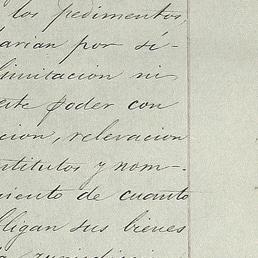 los pedimentos,
darian por sí-
limitacion ni
este poder con
cion, relevacion
ntitutos y nom-
miento de cuanto
bligan sus bienes